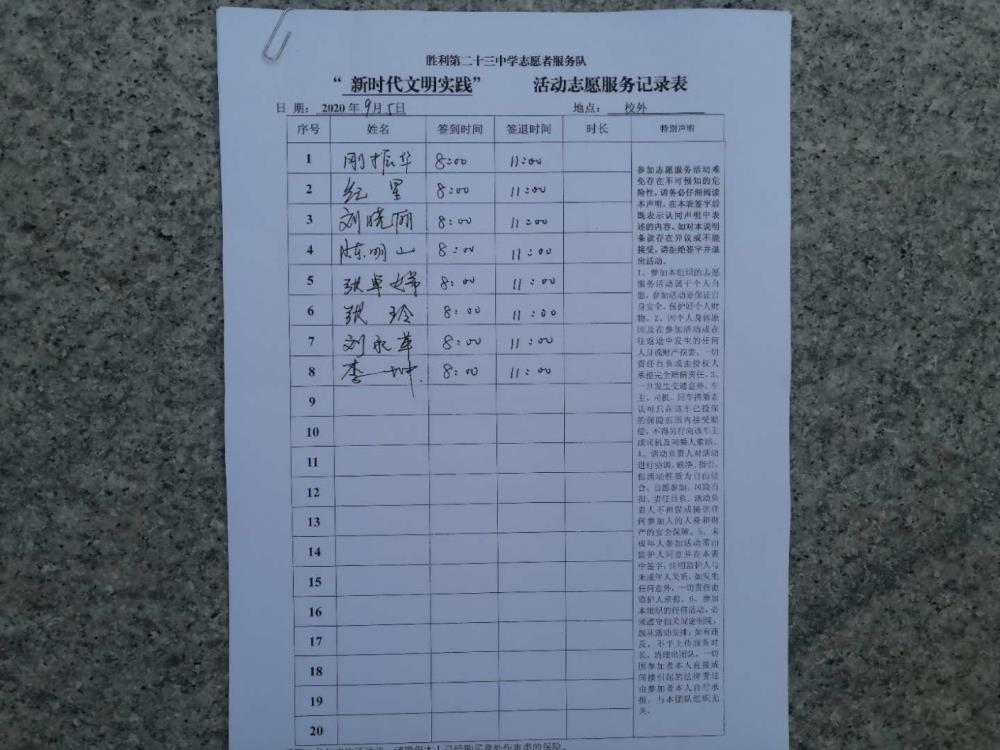 胜利第二十三中学志愿者服务队
“ 新时代文明实践” 活动志愿服务记录表
日 期: 2020年9月5日 地点: 校外
序号 姓名 签到时间 签退时间 时长 特别声明
1 刚振华 8:00 11:00
2 纪 星 8:00 11:00
3 刘晓丽 8:00 11:00
4 陈明山 8:00 11:00
5 张卓娣 8:00 11:00
6 张 玲 8:00 11:00
7 刘永革 8:00 11:00
8 李一坤 8:00 11:00
9
10
11
12
13
14
15
16
17
18
19
20
参加志愿服务活动难
免存在不可预知的危
险性,请务必仔细阅读
本声明,在本表签字后
既表示认同声明中表
述的内容。如对本说明
条款存在异议或不能
接受,请拒绝签字并退
出活动。
1、参加本组织的志愿
服务活动属于个人自
愿,参加活动要保证自
身安全,保护好个人财
物。2、因个人身体原
因及在参加活动或在
往返途中发生的任何
人身或财产损害,一切
责任自负或由侵权人
承担完全赔偿责任。3、
一旦发生交通意外,车
主、司机、同车搭乘者
认可只在该车已投保
的保险范围内接受赔
偿,不得另行向该车主
或司机及同乘人索赔。
4、活动负责人对活动
进行协调、联络、指引,
但活动性质为自由结
合、自愿参加、风险自
担、责任自负。活动负
责人不担保或提供任
何参加人的人身和财
产的安全保障。5、未
成年人参加活动需由
监护人同意并在本表
中签字,注明监护人与
未成年人关系。如发生
任何意外,一切责任由
监护人承担。6、参加
本组织的任何活动,必
须遵守相关规定制度,
服从活动安排;如有违
反,不予上传服务时
长,清理出团队。一切
因参加者本人直接或
间接引起的法律责任
由参加者本人自行承
担,与本团队组织无
关。